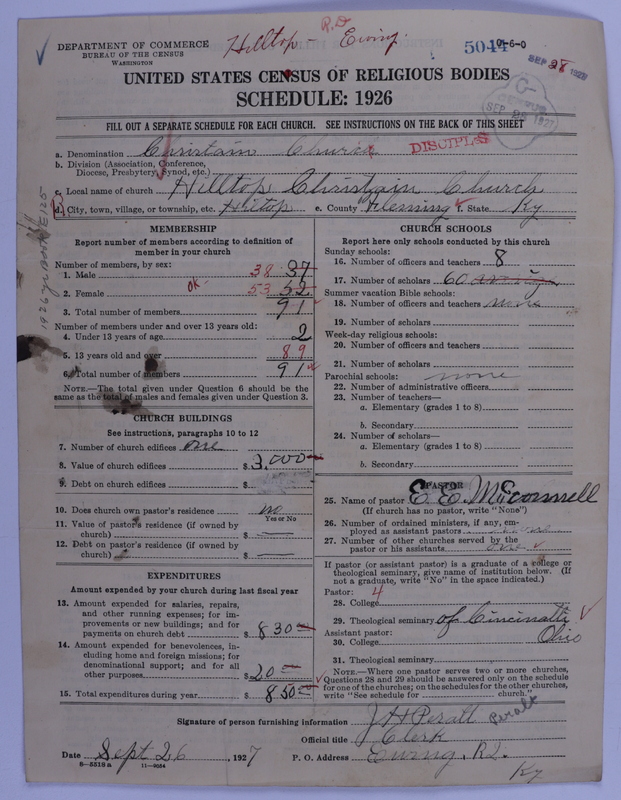 R.D
Hilltop - Ewing.
DEPARTMENT OF COMMERCE
BUREAU OF THE CENSUS
WASHINGTON
5044 01-6-0
SEP 28 1928
UNITED STATES CENSUS OF RELIGIOUS BODIES
SCHEDULE: 1926
SEP 28 1927
FILL OUT A SEPARATE SCHEDULE FOR EACH CHURCH. SEE INSTRUCTIONS ON THE BACK OF THIS SHEET
a. Denomination Christain Church
DISCIPLES
b. Division (Association, Conference,
Diocese, Presbytery, Synod, etc.)
c. Local name of church Hilltop Christain Church
d. City, town, village, or township, etc. Hiltop e. County Fleming f. State Ky
MEMBERSHIP
Report number of members according to definition of
member in your church
Number of members, by sex:
1. Male 38 37
2. Female OK 53 52
3. Total number of members 91
Number of members under and over 13 years old:
4. Under 13 years of age 2
5. 13 years old and over 89
6. Total number of members 91
NOTE.—The total given under Question 6 should be the
same as the total of males and females given under Question 3.
CHURCH BUILDINGS
See instructions, paragraphs 10 to 12
7. Number of church edifices one
8. Value of church edifices $ 3,000
9. Debt on church edifices $
10. Does church own pastor's residence no
Yes or No
11. Value of pastor's residence (if owned by
church) $ —
12. Debt on pastor's residence (if owned by
church) $ —
EXPENDITURES
Amount expended by your church during last fiscal year
13. Amount expended for salaries, repairs,
and other running expenses; for im-
provements or new buildings; and for
payments on church debt $ 830
14. Amount expended for benevolences, in-
cluding home and foreign missions; for
denominational support; and for all
other purposes $ 20
15. Total expenditures during year $ 850
CHURCH SCHOOLS
Report here only schools conducted by this church
Sunday schools:
16. Number of officers and teachers 8
17. Number of scholars 60
Summer vacation Bible schools:
18. Number of officers and teachers none
19. Number of scholars
Week-day religious schools:
20. Number of officers and teachers
21. Number of scholars
Parochial schools: none
22. Number of administrative officers
23. Number of teachers—
a. Elementary (grades 1 to 8)
b. Secondary
24. Number of scholars—
a. Elementary (grades 1 to 8)
b. Secondary
PASTOR
25. Name of pastor E. E. McConnell
(If church has no pastor, write "None")
26. Number of ordained ministers, if any, em-
ployed as assistant pastors none
27. Number of other churches served by the
pastor or his assistants one
If pastor (or assistant pastor) is a graduate of a college or
theological seminary, give name of institution below. (If
not a graduate, write "No" in the space indicated.)
Pastor: 4
28. College
29. Theological seminary of Cincinatti
Ohio
Assistant pastor:
30. College
31. Theological seminary
NOTE.—Where one pastor serves two or more churches,
Questions 28 and 29 should be answered only on the schedule
for one of the churches; on the schedules for the other churches,
write "See schedule for church."
Signature of person furnishing information J H Peralt
Peralt
Official title Clerk
Date Sept 26, 1927 P. O. Address Ewing, R2.
Ky
8—5518a 11—9034